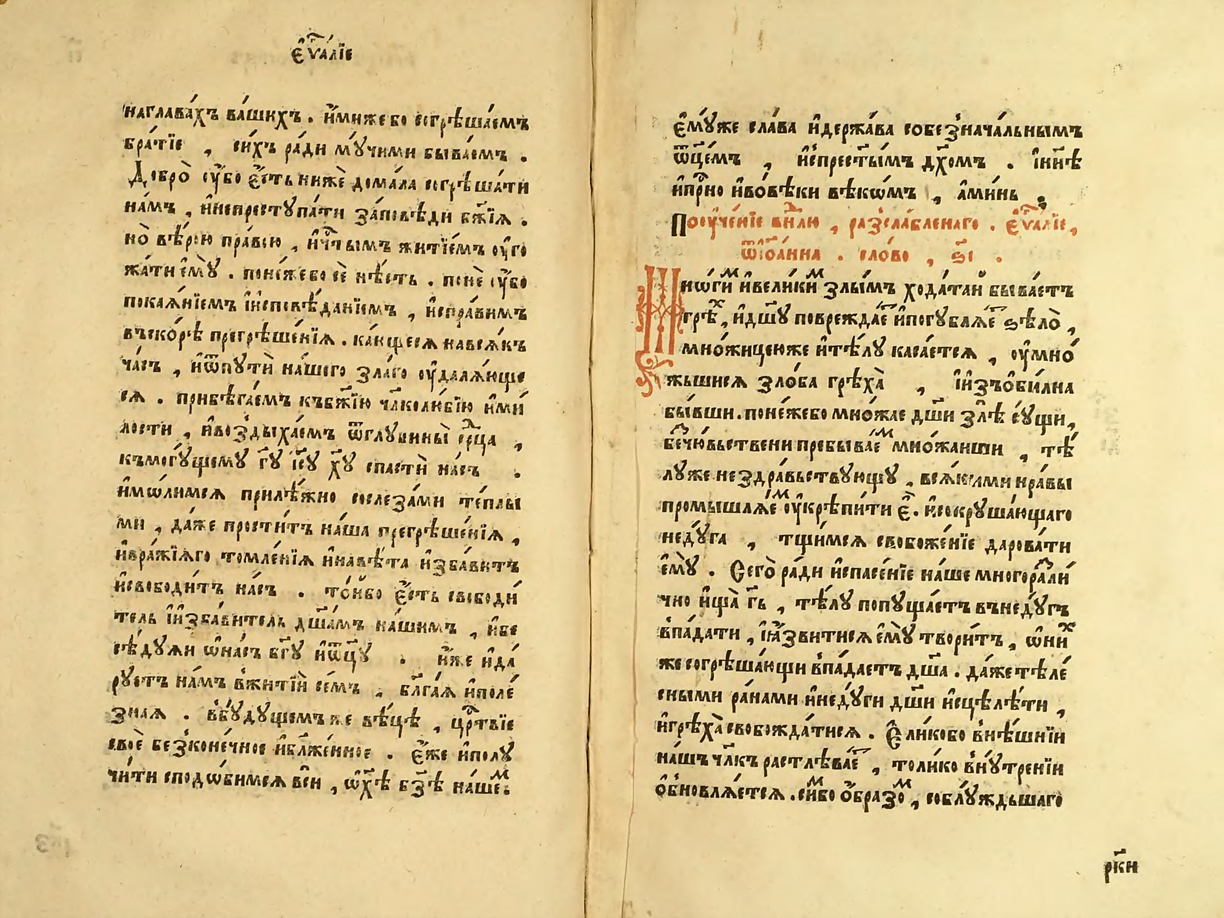 є҆ѵⷢ҇алїе
наглава́хъ ва́шихъ . и҆́миже бо согрѣша́емъ
бра́тїе , си́хъ ра́ди мꙋ́чими быва́емъ .
Добро̀ ᲂу҆́бо є҆́сть нижѐ дома́ла согрѣша́ти
на́мъ , и҆непрестꙋпа́ти за́повѣди бж҃їѧ .
но̀ вѣ́рою пра́вою , и҆чⷭ҇тымъ житїе́мъ ᲂу҆го
жа́ти є҆мꙋ̀ . поне́же бо сѐ нѣ́сть . понѐ ᲂу҆́бо
покаѧ́нїемъ і҆исповѣ́данїемъ , и҆спра́вимъ
въско́рѣ прегрѣше́нїѧ . ка́ющесѧ навсѧ́къ
ча́съ , и҆ѿпꙋтѝ на́шего зла́го ᲂу҆далѧ́юще
сѧ . прибѣга́емъ къбж҃їю чл҃колю́бїю и҆ми́
лости , и҆воздыха́емъ ѿглꙋбины̀ срⷣца ,
къмогꙋ́щемꙋ гꙋ҃ і҆сꙋ҃ хꙋ҃ спастѝ на́съ .
и҆мо́лимсѧ прилѣ́жно сослеза́ми те́плы
ми , да́же прости́тъ на́ша прегрѣше́нїѧ ,
и҆вра́жїѧго томле́нїѧ и҆навѣ́та и҆зба́витъ
и҆свободи́тъ на́съ . то́и бо є҆́сть свободи́
тель і҆изба́витель дш҃а́мъ на́шимъ , и҆бе
сѣ́дꙋѧи ѡ҆на́съ бг҃ꙋ и҆ѿц҃ꙋ . и҆́же и҆да́
рꙋетъ на́мъ вжитїѝ се́мъ , бл҃га́ѧ и҆поле́
знаѧ . вбꙋ́дꙋщемъже вѣ́цѣ , црⷭ҇твїе
своѐ безконе́чное и҆бл҃же́нное . є҆́же и҆полꙋ
чи́ти сподо́бимсѧ всѝ , ѡ҆хⷭ҇ѣ бз҃ѣ на́шеⷨ .
є҆мꙋ́же сла́ва и҆держа́ва собезнача́льнымъ
ѿц҃е́мъ , и҆спрест҃ы́мъ дх҃о́мъ . і҆ни́нѣ
и҆прⷭ҇но и҆вовѣ́ки вѣко́мъ , а҆ми́нь .
Поᲂуче́нїе внⷣлю , разсла́бленаго . є҆ѵⷢ҇алїе ,
ѿіѡа́нна . сло́во , ѕ҃і .
Мно́гиⷨ и҆вели́киⷨ злы́мъ хода́таи быва́етъ
грѣⷯ , и҆дш҃ꙋ поврежда́еⷮ и҆погꙋблѧ́еⷮ ѕѣлѡ̀ ,
мно́жицеюже и҆тѣ́лꙋ каса́етсѧ , ᲂу҆мно́
жьшисѧ зло́ба грѣха̀ , і҆изъѻби́лна
бы́вши . поне́же бо мно́жае дш҃и злѣ̀ сꙋ́щи ,
беⷥчю́вьствени пребыва́еⷨ мно́жаиши , тѣ́
лꙋже нездра́вьствꙋющꙋ , вся́кими нра́вы
промышлѧ́еⷨ ᲂу҆крѣпи́ти є҆̀ . и҆сокрꙋша́ющаго
недꙋ́га , тщи́мсѧ свобоже́нїе дарова́ти
є҆мꙋ̀ . Сего̀ ра́ди и҆спасе́нїе на́ше многоразли́
чно и҆ща̀ гь҃ , тѣ́лꙋ попꙋща́етъ внедꙋ́гъ
впа́дати , і҆ѧ́звитисѧ є҆мꙋ̀ твори́тъ , ѡ҆ни́ⷯ
же согрѣша́ющи впа́даетъ дш҃а . да́же тѣле́
сными ра́нами и҆недꙋ́ги дш҃и и҆сцѣлѣ́ти ,
и҆грѣха̀ свобожда́тисѧ . Є҆ли́ко бо внѣ́шнїи
на́шъ чл҃къ растлѣва́еⷮ , толи́ко внꙋ́тренїи
ѻ҆бновлѧ́етсѧ . си́мъ бо ѻ҆́бразоⷨ , соблꙋ́ждьшаго
рк҃и